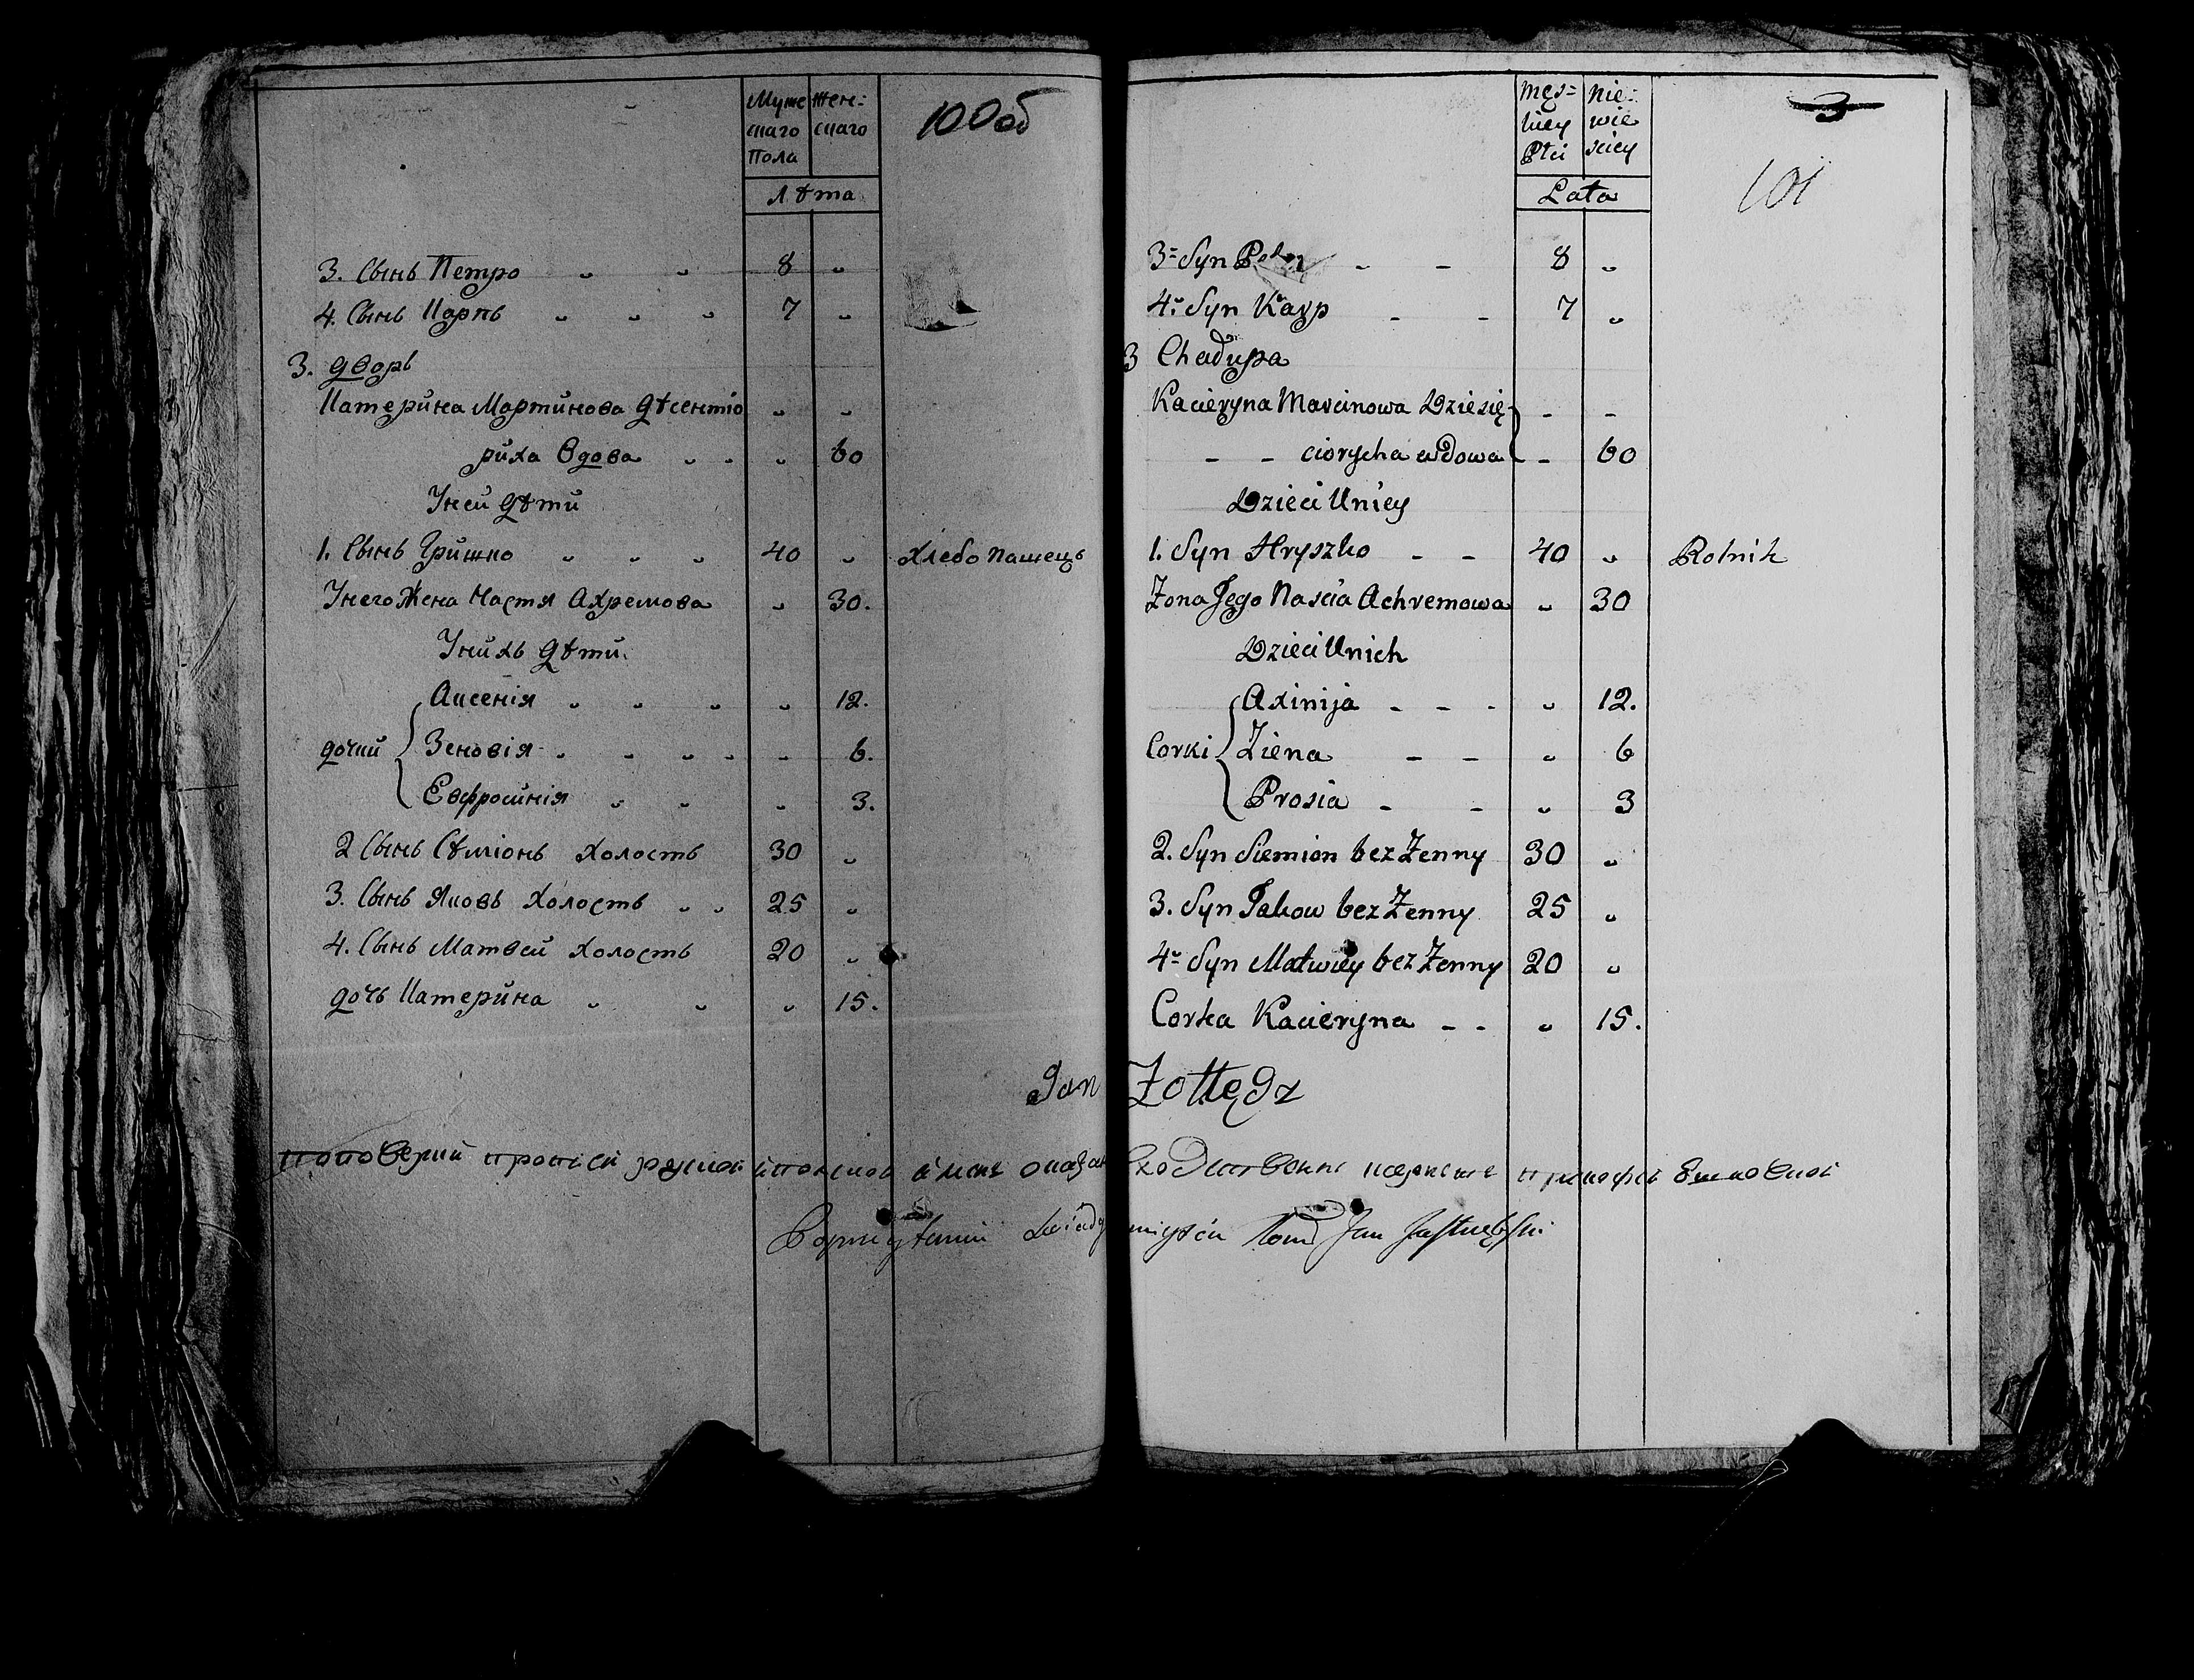 Муже женс=
скаго скаго
Пола
100 об
Лѣта
3. Сынъ Петро 8 "
4. Сынъ Карпъ 7 "
3. дворъ
Катерина Мартинова Дѣсентіо " "
риха Вдова " 60
У ней дѣти
1. Сынъ Гришко 40 " Хлебопашець
У него Жена Настя Ахремова " 30.
У нихъ дѣти.
Аксенія " 12.
дочки Зеновія " 6.
Евфросинія " 3.
2 Сынъ Сѣміонъ холостъ 30 "
3. Сынъ Яковъ холостъ 25 "
4. Сынъ Матвей холостъ 20 "
дочь Катерина " 15.
męs= nie=
kiey wie
Płci sciey
3
101
Lata
3= Syn Petr 8 "
4. Syn Karp 7 "
3 Chałupa
Kacieryna Marcinowa Dziesię- - -
ciorycha wdowa - 60
Dzieci Uniey
1. Syn Hryszko - - 40 " Rolnik
Żona Jego Naścia Achremowa " 30
Dzieci Unich
Axinija - - - " 12.
Corki Ziena - - " 6
Prosia - - " 3
2. Syn Siemion bez Żenny 30 "
3. Syn Jakow bez Żenny 25 "
4= Syn Matwiey bez Żenny 20 "
Corka Kacieryna - - " 15.
Jan Żołłędz
Jan